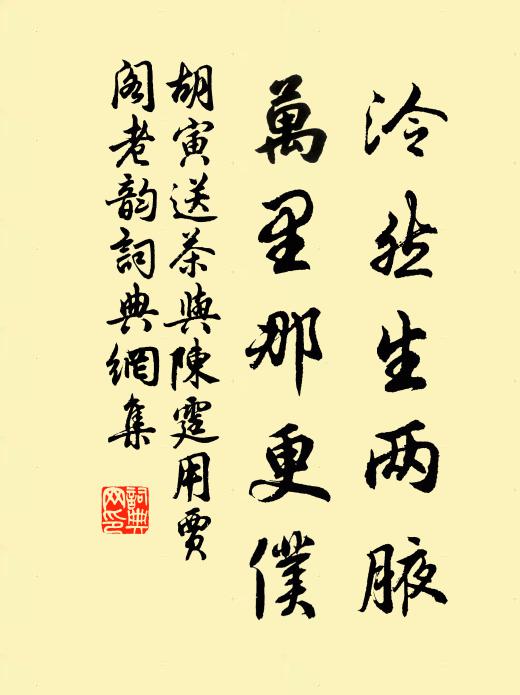 泠然生两腋
萬里那更僕
胡寅送茶與陳霆用賈
阁老韵詞典網集
詞典
网印